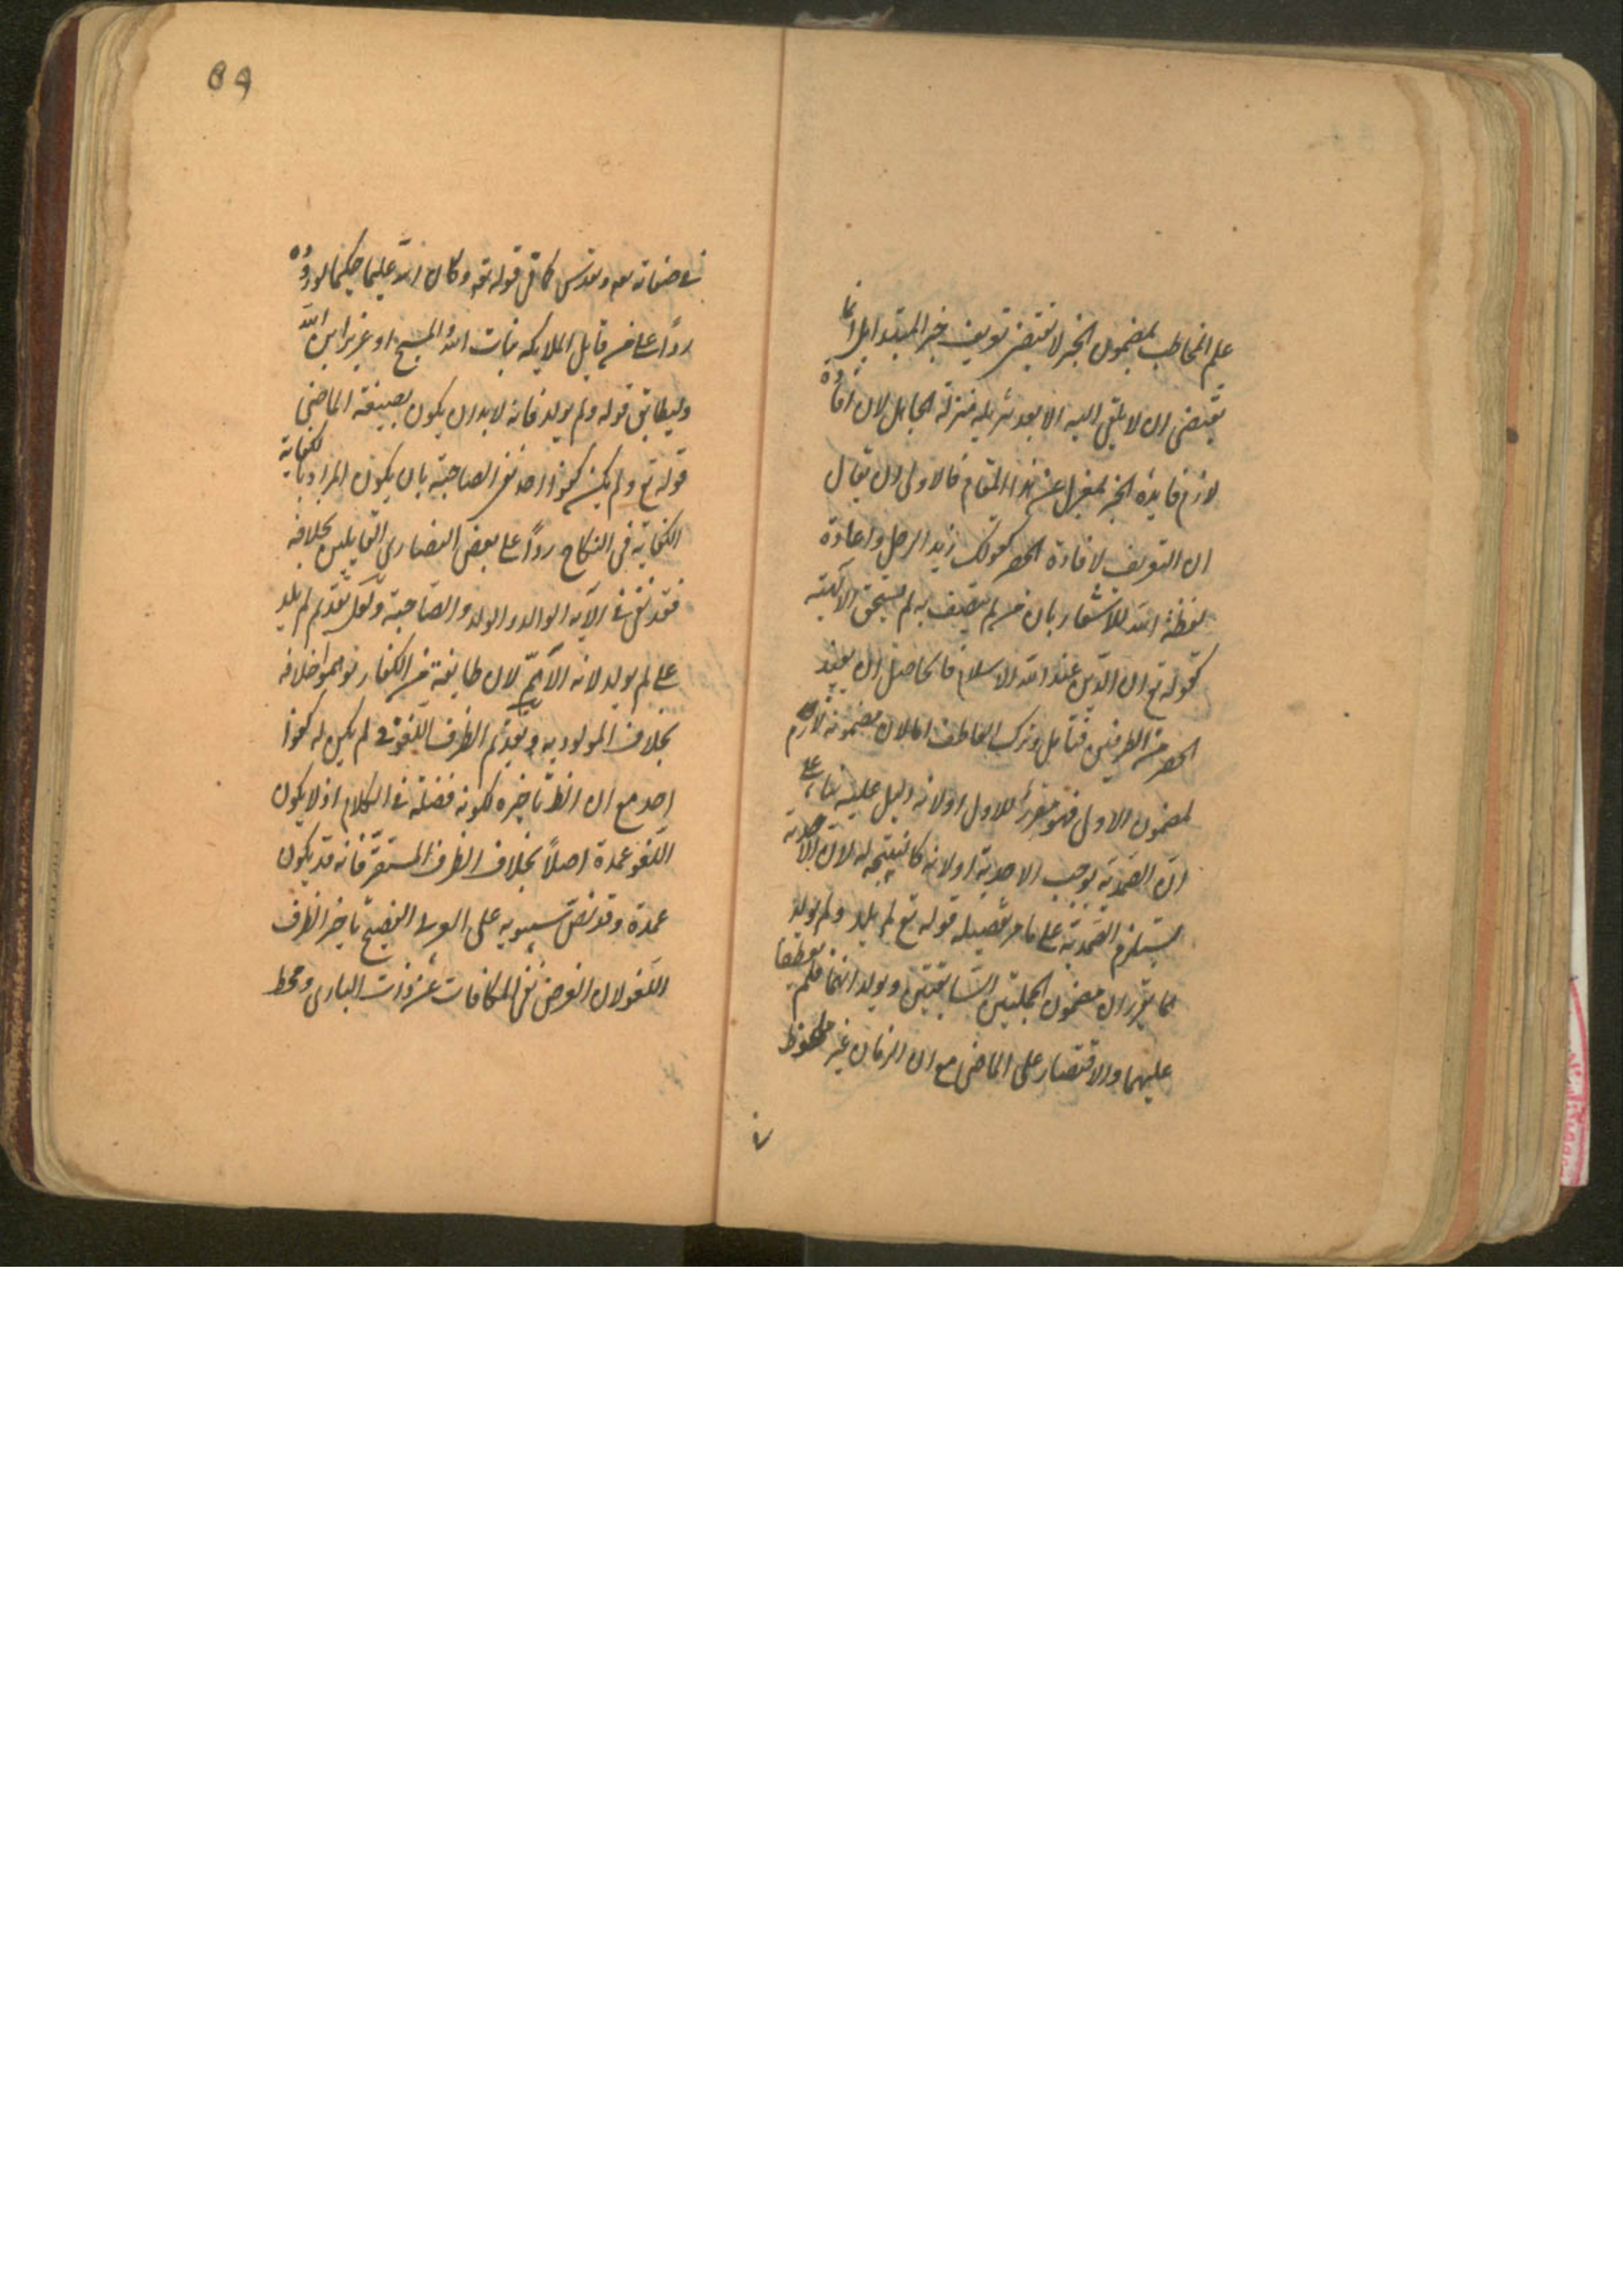 علم المخاطب بمضمون الخبر لا يقتضى تعريف خبر المبتدا بل انما
يقتضى ان لا يلقى اليه الا بعد تنزيله منزلة الجاهل لان افادة
لازم فايدة الخبر بمعزل عن هذا المقام فالاولى ان يقال
ان التعريف لافادة الحصر كقولك زيد الرجل واعادة
لفظة الله للاشعار بان من لم يتصف به لم يستحق الالهية
كقوله تع ان الدين عند الله الاسلام فالحاصل ان يفيد
الحصر من الطرفين فتامل وترك العاطف اما لان مضمونه لازم
لمضمون الاولى فهو مقرر للاول او لانه دليل عليه بناء على
ان الصمدية يوجب الاحدية او لانه كالنتيجه له لان الاحدية
يستلزم الصمدية على ما مر تفصيله قوله تع لم يلد ولم يولد
لما يقرر ان مضمون الجملتين السابقتين ويولد انهما فلم يعطفا
عليهما والاقتصار على الماضى مع ان الزمان غير ملحوظ
فى
89
فى صفاته تعه وتقدس كما فى قوله تعه وكان الله عليما حكيما لوروده
ردًا على من قايل الملايكه بنات الله او المسيح او عزير ابن الله
وليطابق قوله ولم يولد فانه لا بد ان يكون بصيغة الماضى
قوله تع ولم يكن كفوا احد نفى الصاحبة بان يكون المراد بالكفاية
الكفاية فى النكاح ردًا على بعض النصارى القايلين بخلافه
فقد نفى فى الآية الوالد والولد والصاحبة ولعل تقديم لم يلد
على لم يولد لانه الاهمّ لان طايفة من الكفار توهموا خلافه
بخلاف المولودية وتقديم الظرف اللغو فى لم يكن له كفوا
احد مع ان الظ تاخيره لكونه فضلة فى الكلام اذ لا يكون
اللغو عمدة اصلًا بخلاف الظرف المستقرّ فانه قد يكون
عمدة وقد نصّ سيبويه على العربى الفصيح تاخير الظرف
اللغو لان الغرض نفى المكافات عن ذات البارى ومحط